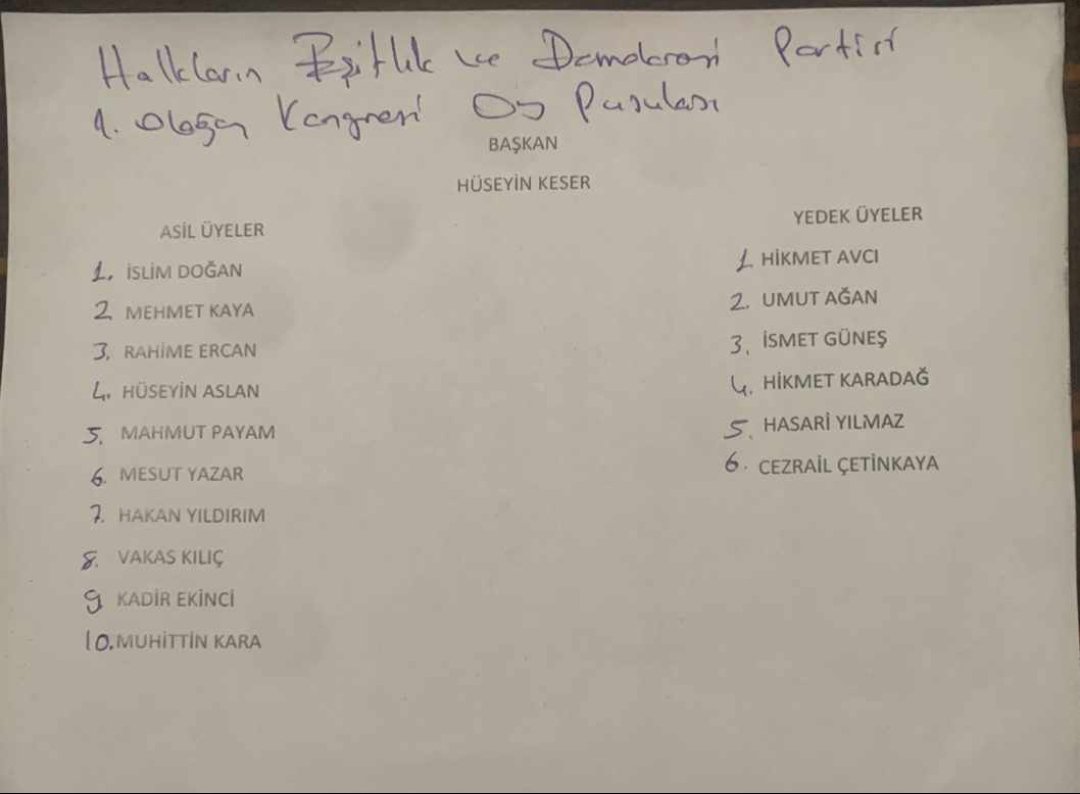 Halkların Eşitlik ve Demokrasi Partisi
1. Olağan Kongresi Oy Pusulası
BAŞKAN
HÜSEYİN KESER
ASİL ÜYELER
1. İSLİM DOĞAN
2 MEHMET KAYA
3. RAHİME ERCAN
4. HÜSEYİN ASLAN
5. MAHMUT PAYAM
6. MESUT YAZAR
7. HAKAN YILDIRIM
8. VAKAS KILIÇ
9 KADİR EKİNCİ
10. MUHİTTİN KARA
YEDEK ÜYELER
1. HİKMET AVCI
2. UMUT AĞAN
3. İSMET GÜNEŞ
4. HİKMET KARADAĞ
5. HASARİ YILMAZ
6. CEZRAİL ÇETİNKAYA